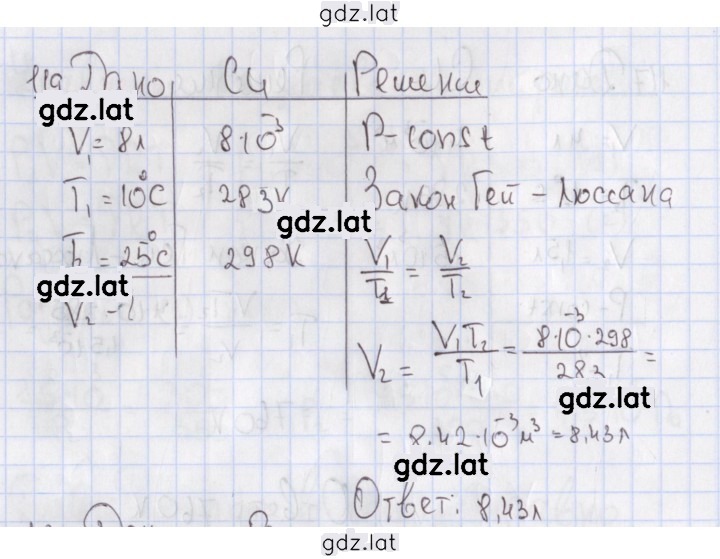 gdz.lat
119 Дано СИ Решение
gdz.lat
V₁ = 8л 8·10⁻³ P-const
T₁ = 10°C 283K Закон Гей-Люссака
gdz.lat
T₂ = 25°C 298K V₁/T₁ = V₂/T₂
gdz.lat
V₂ - ?
V₂ = V₁T₂/T₁ = 8·10⁻³·298/282 =
gdz.lat
= 8.42·10⁻³ м³ = 8,43л
gdz.lat
Ответ: 8,43л
gdz.lat